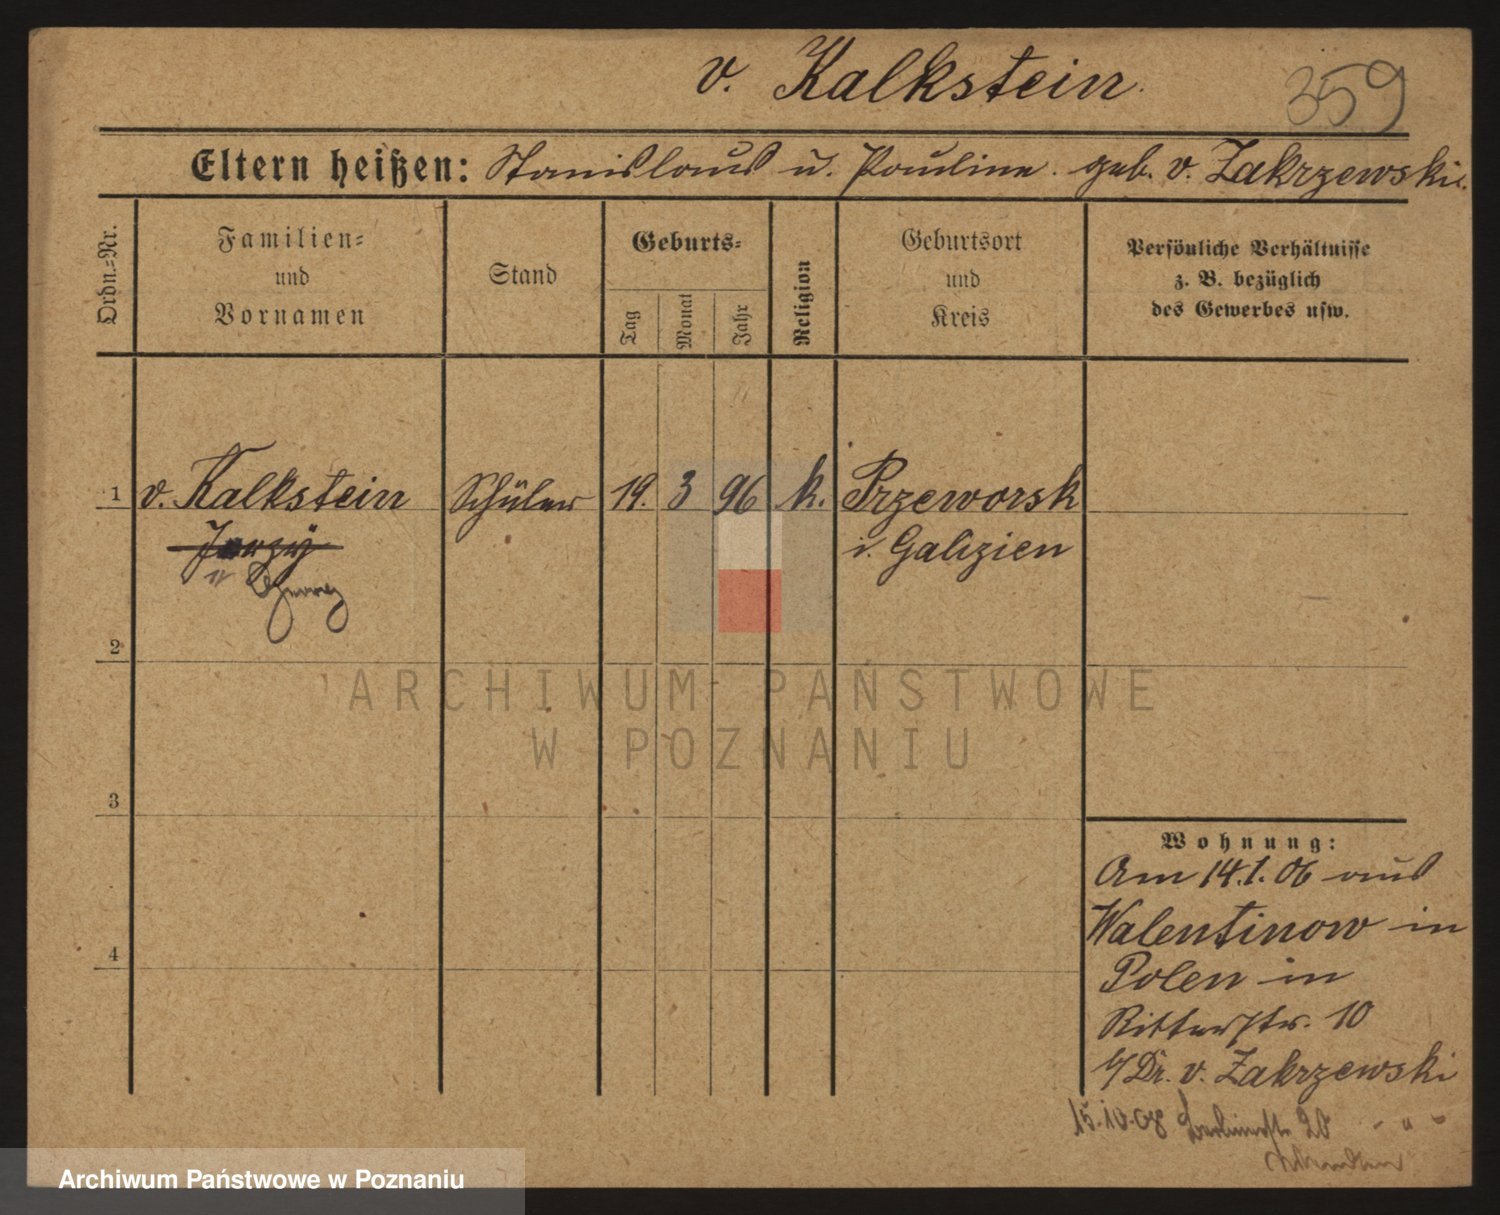 v. Kalkstein.
359
Eltern heißen: Stanislaus u. Pauline. geb. v. Zakrzewski.
Ordn.=Nr.
Familien=
und
Vornamen
Stand
Geburts=
Tag
Monat
Jahr
Religion
Geburtsort
und
Kreis
Persönliche Verhältnisse
z. B. bezüglich
des Gewerbes usw.
1 v. Kalkstein Schüler 19. 3 96 k. Przeworsk
Jerzy i. Galizien
Georg
2
ARCHIWUM PAŃSTWOWE
W POZNANIU
3
4
Wohnung:
Am 14.1.06 aus
Walentinow in
Polen in
Ritterstr. 10
b/ Dr. v. Zakrzewski
15.10.08 Berlinerstr 20 - " -
Archiwum Państwowe w Poznaniu